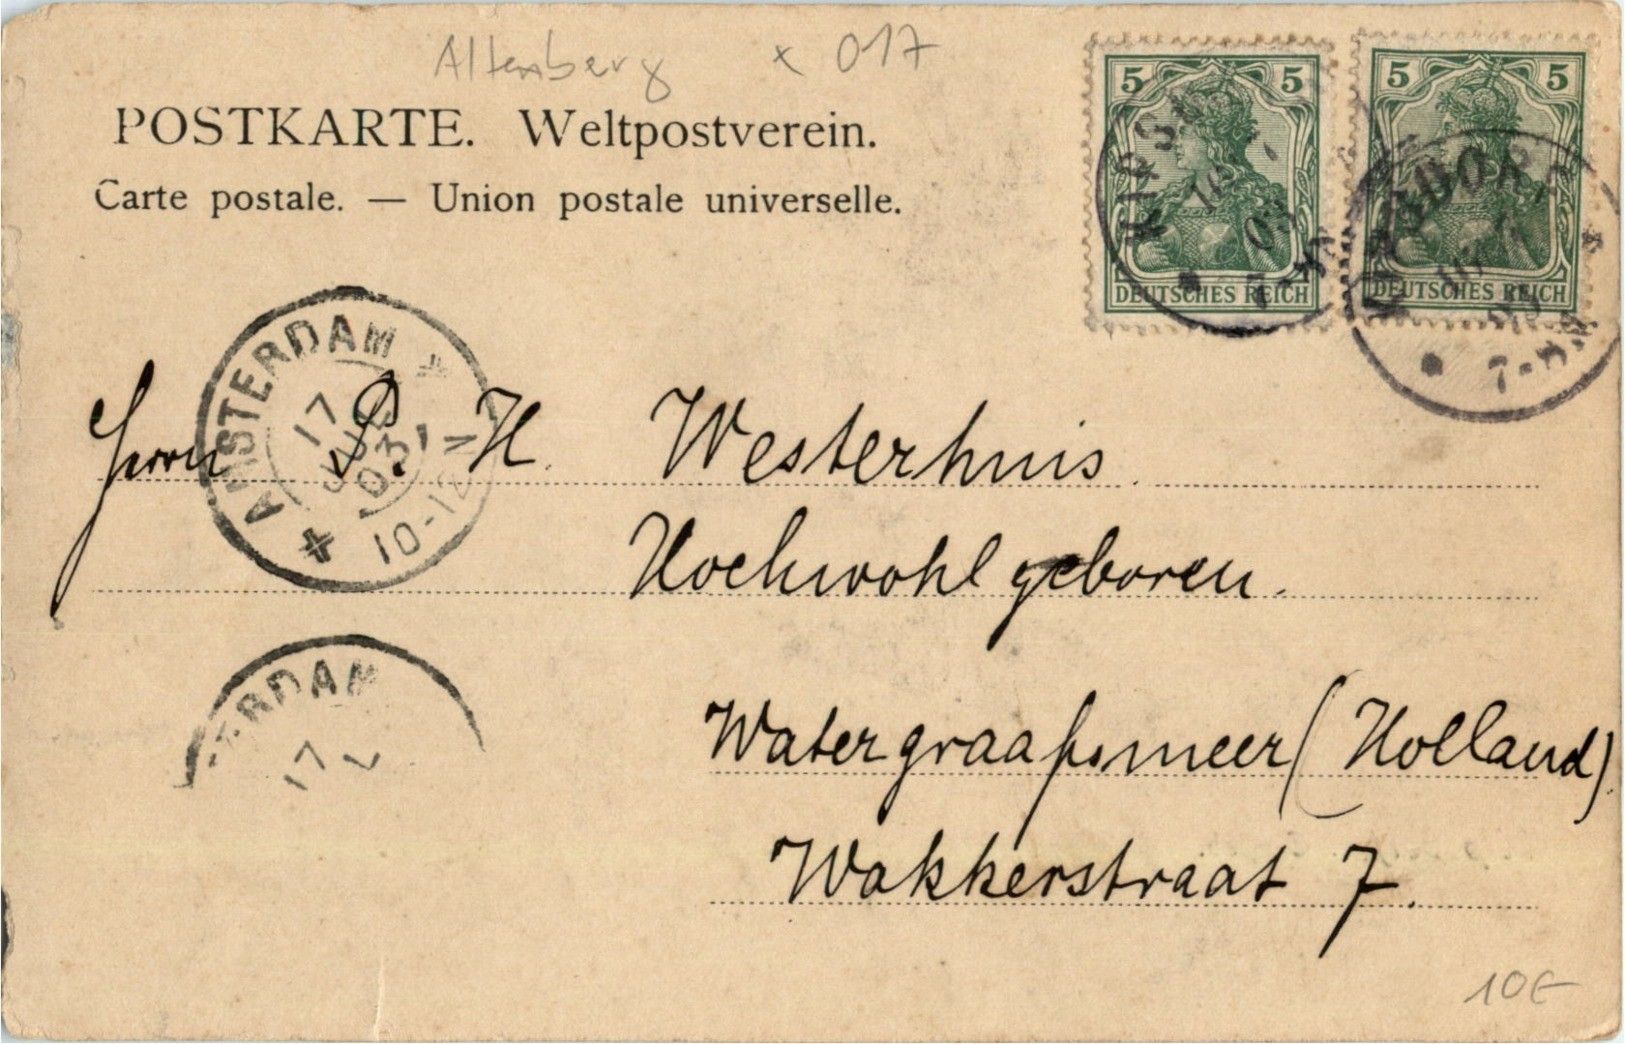 Altenberg x 017
POSTKARTE. Weltpostverein.
Carte postale. — Union postale universelle.
5 5
DEUTSCHES REICH
5 5
DEUTSCHES REICH
7-8
AMSTERDAM
17
03
10-12 V
Herrn P. H. Westerhuis
Hochwohlgeboren.
Watergraafsmeer (Holland)
Wakkerstraat 7.
TERDAM
17
10€